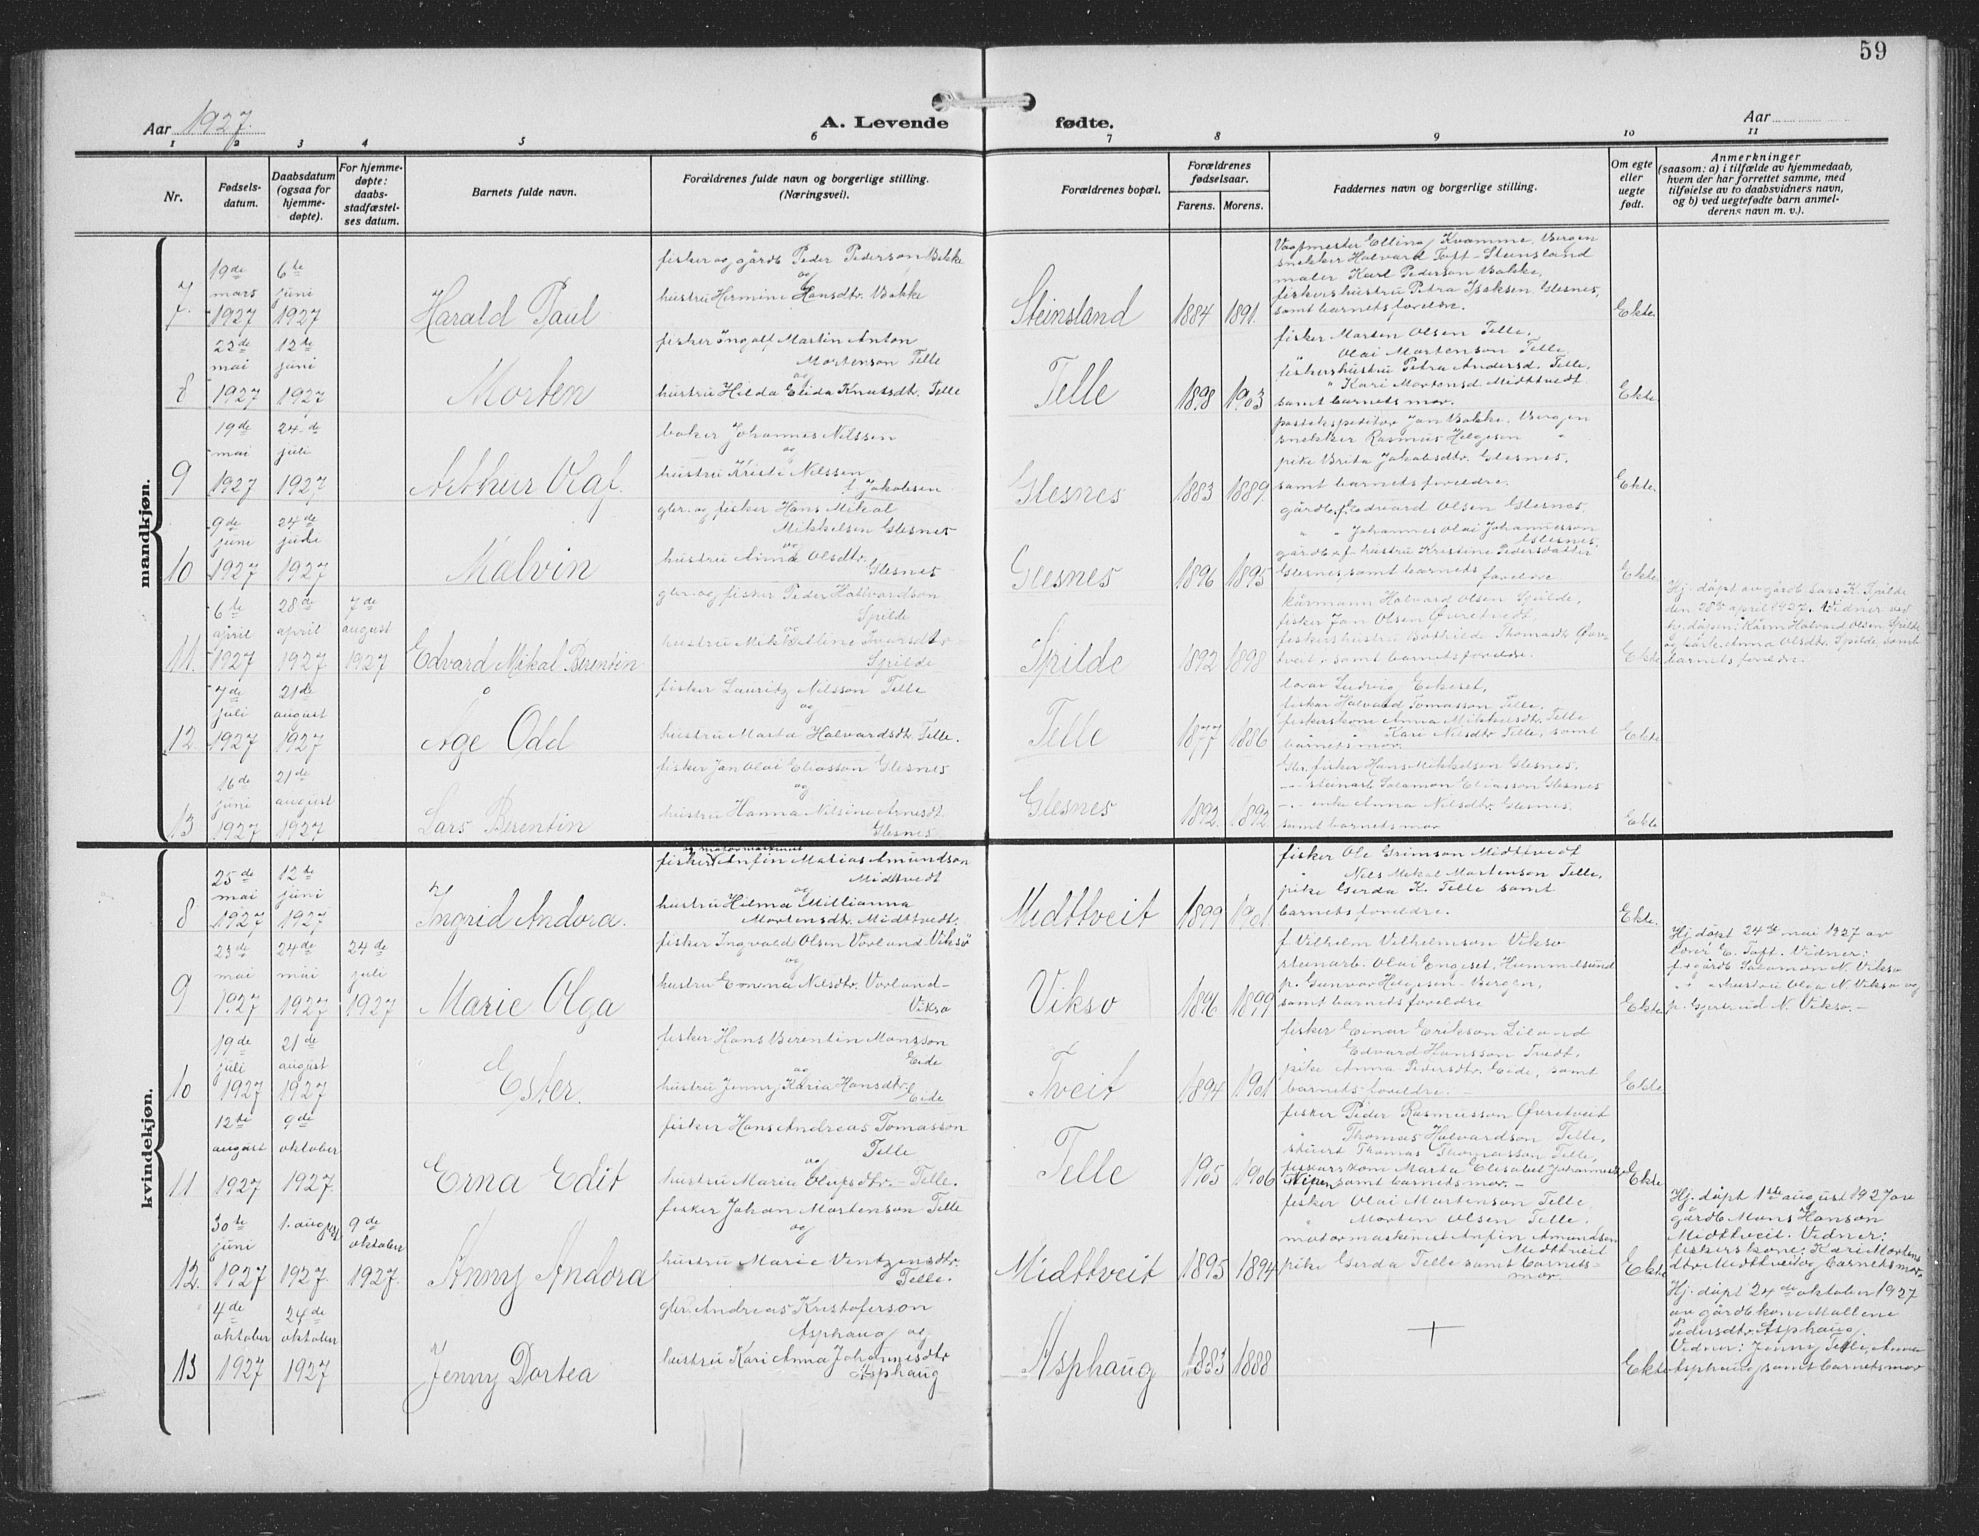 59
Aar 1927.
A. Levende fødte.
Aar
1 2 3 4 5 6 7 8 9 10 11
Nr.
Fødsels-
datum.
Daabsdatum
(ogsaa for
hjemme-
døpte).
For hjemme-
døpte:
daabs-
stadfæstel-
ses datum.
Barnets fulde navn.
Forældrenes fulde navn og borgerlige stilling.
(Næringsvei).
Forældrenes bopæl.
Forældrenes
fødselsaar.
Farens. Morens.
Faddernes navn og borgerlige stilling.
Om egte
eller
uegte
født.
Anmerkninger
(saasom: a) i tilfælde av hjemmedaab,
hvem der har forrettet samme, med
tilføielse av to daabsvidners navn,
og b) ved uegtefødte barn anmel-
derens navn m. v.).
mandkjøn.
7. 19de mars 1927 6te juni 1927
Harald Paul
fisker og gårdb Peder Pederson Bakke
og
hustru Hermine Hansdtr. Bakke
Steinsland 1884 1891.
Vagtmester Elling Kvamme, Bergen
snekker Halvard Toft - Steinsland
maler Karl Pederson Bakke,
fiskershustru Petra Isaksen Glesnes,
samt barnets foreldre.
Ekte.
8 22de mai 1927 12te juni 1927
Morten
fisker Ingolf Martin Anton
Mortenson Telle
og
hustru Hilda Elida Knutsdtr. Telle
Telle 1898 1903
fisker Morten Olsen Telle,
" Olai Mortenson Telle
fiskershustru Petra Andersd. Telle,
" Kari Mortensd Midttvedt
samt barnets mor.
Ekte.
9 19de mai 1927 24de juli 1927
Arthur Olaf.
baker Johannes Nilssen
og
hustru Kristi Nilssen
f. Jakobsen
Glesnes 1883 1889.
postekspeditør Jan Bakke, Bergen
snekker Rasmus Helgesen "
pike Brita Jakobsdtr. Glesnes,
samt barnets foreldre.
Ekte.
10 9de juni 1927 24de 1927
Malvin
gbr. og fisker Hans Mikal
Mikkelsen Glesnes
og
hustru Anna Olsdtr.
Glesnes
Glesnes 1896 1895
gårdb. f. Edvard Olsen Glesnes,
" " Johannes Olai Johannesson
Glesnes,
gårdb. f. hustru Kristine Pedersdatter
Glesnes, samt barnets foreldre
Ekte.
11. 6te april 1927 28de april 1927 7de august 1927
Edvard Mikal Berentin
gbr. og fisker Peder Halvardson
Spilde
og
hustru Mikkeline Ivarsdtr.
Spilde
Spilde 1892 1898
kårmann Halvard Olsen Spilde,
fisker Jan Olsen Øvretveit,
fiskershustru Bothilde Thomasdtr. Øvre-
tveit, samt barnets foreldre.
Ekte
Hj. døpt av gårdb. Lars K. Spilde
den 28de april 1927. Vidner ved
hj. dåpen: Kårm. Halvard Olsen Spilde
og Anna Olsdtr. Spilde, samt
barnets foreldre.
12. 7de juli 1927 21de august 1927
Åge Odd
fisker Lauritz Nilsson Telle
og
hustru Marta Halvardsdtr. Telle.
Telle 1877 1886
lærer Ludvig
fisker Halvard Tomasson Telle,
fiskerskone Anna Mikkelsdtr. Telle
Kari Nilsdtr Telle, samt
barnets mor.
Ekte
13 16de juni 1927 21de august 1927
Lars Berentin
fisker Jan Olai Eliasson Glesnes
og
hustru Hanna Nilsine Arnesdt
Glesnes.
Glesnes 1892. 1892
Gbr. fisker Hans Mikkelsen Glesnes,
steinarb. Salamon Eliasson Glesnes
enke Anna Nilsdtr. Glesnes.
samt barnets mor
Ekte
kvindekjøn.
8 25de mai 1927 12te juni 1927
Ingrid Andora.
og motormaskinist
fisker Anfin Matias Amundson
Midttvedt
og
hustru Hilma Millianna
Mortensdtr. Midttvedt.
Midttveit 1899 1901.
fisker Ole Grimson Midttvedt
" Nils Mikal Mortenson Telle,
pike Gerda K. Telle samt
barnets foreldre.
Ekte.
9 23de mai 1927 24de mai 1927 24de juli 1927
Marie Olga
fisker Ingvald Olsen Vorland - Viksø
og
hustru Emma Nilsdtr. Vorland-
Viksø
Viksø 1896 1899
f. Vilhelm Vilhelmson Viksø
steinarb. Olai Engeset, Hummelsund
p. Gunvor Helgesen - Bergen,
samt barnets foreldre
Ekte
Hj. døpt 24de mai 1927 av
lærer E. Toft. Vidner:
f. + gårdb. Salamon N. Viksø
" " hustru Olga N. Viksø og
p. Gjertrud N. Viksø. -
10 19de juli 1927 21de august 1927
Ester.
fisker Hans Berentin Monsson
Eide
og
hustru Jenny Karia Hansdtr.
Eide
Tveit 1894 1901
fisker Einar Erikson Liland
" Edvard Hansson Tvedt,
pike Anna Pedersdtr. Eide, samt
barnets foreldre. -
Ekte
11 12te august 1927 9de oktober 1927.
Erna Edit
fisker Hans Andreas Tomasson
Telle
og
hustru Maria Olufsdtr. - Telle.
Telle 1905 1906
fisker Peder Rasmusson Øvretveit
" Thomas Halvardson Telle,
stuert Thomas Thomasson Telle,
fiskerskone Marta Elisabet Johannesd.
samt barnets mor. -
Ekte
12. 30te juni 1927 1. august 1927. 9de oktober 1927.
Anny Andora
fisker Johan Mortenson Telle
og
hustru Marie Ventzensdtr.
Telle.
Midttveit 1895 1894
fisker Olai Mortenson Telle
" Morten Olsen Telle.
motormaskinist Anfin Amundsen
Midttveit
pike Gerda Telle samt barnets-
mor.
Ekte
Hj. døpt 1ste august 1927 av
gårdb. Mons Hanson
Midttveit. Vidner:
fiskerskone: Kari Mortens
dtr. Midttveit og barnets mor.
13 4de oktober 1927 24de oktober 1927
Jenny Dortea
gbr. Andreas Kristoferson
Asphaug og
hustru Kari Anna Johannesdtr
Asphaug
Asphaug 1883 1888
+
Ekte
Hj. døpt 24de oktober 1927
av gårdbkone Mallene
Pedersdtr. Asphaug.
Vidner: Jenny Telle, Anna
Asphaug samt barnets mor